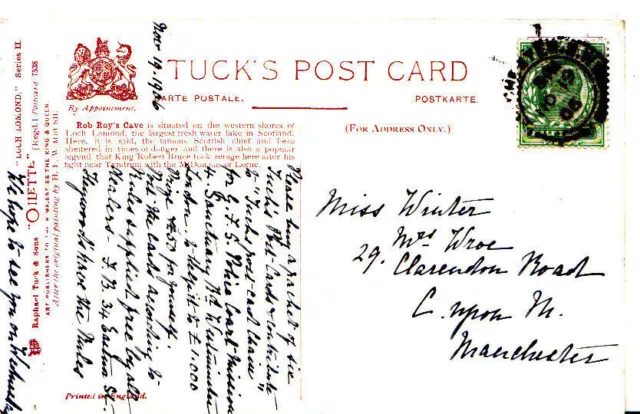 Nov 19. 1906
TUCK'S POST CARD
CARTE POSTALE.
POSTKARTE.
By Appointment.
(FOR ADDRESS ONLY.)
Rob Roy's Cave is situated on the western shores of
Loch Lomond, the largest fresh water lake in Scotland.
Here, it is said, the famous Scottish chief and hero
sheltered in times of danger and there is also a popular
legend that King Robert Bruce took refuge here after his
fight near Tyndrum with the McDougals of Lorne.
Raphael Tuck & Sons "OILETTE" [Regd.] Postcard 7538
"LOCH LOMOND." Series II.
ART PUBLISHERS TO THEIR MAJESTIES THE KING & QUEEN.
After the original painting by H. B. WIMBUSH.
Please buy a packet of six
Tuck's Post Cards & contribute
to "Tucks post-card chain"
for G.F.S. Police Court Mission
Sanctuary Westminster
London. & help it to £1,000
Prize & £50 for yourself.
Send the card according to
Rules supplied free by all
Dealers - F.B. 34 Eastern St.
Haywoods have the Rules
We hope to see you on Wednesday
Miss Winter
Mrs Wroe
29. Clarendon Road
C. upon M.
Manchester
Printed in England.